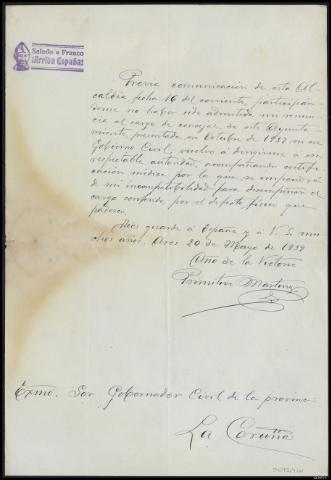 Saludo a Franco
¡Arriba España!
Previa comunicación de esta Al-
caldía fecha 16 del corriente, participán-
dome no haber sido admitida mi renun-
cia al cargo de concejal de este Ayunta-
miento, presentada en Octubre de 1937 en ese
Gobierno Civil, vuelvo á dirigirme a su
respetable autoridad, acompañando certifi-
cación médica por la que se
de mi incompatibilidad para desempeñar el
cargo conferido por el defecto físico que
padezco.
Dios guarde á España y á V. S. mu-
chos años. 20 de Mayo de 1939
Año de la Victoria
Primitivo Martínez
Exmo. Sor Gobernador Civil de la provincia
La Coruña